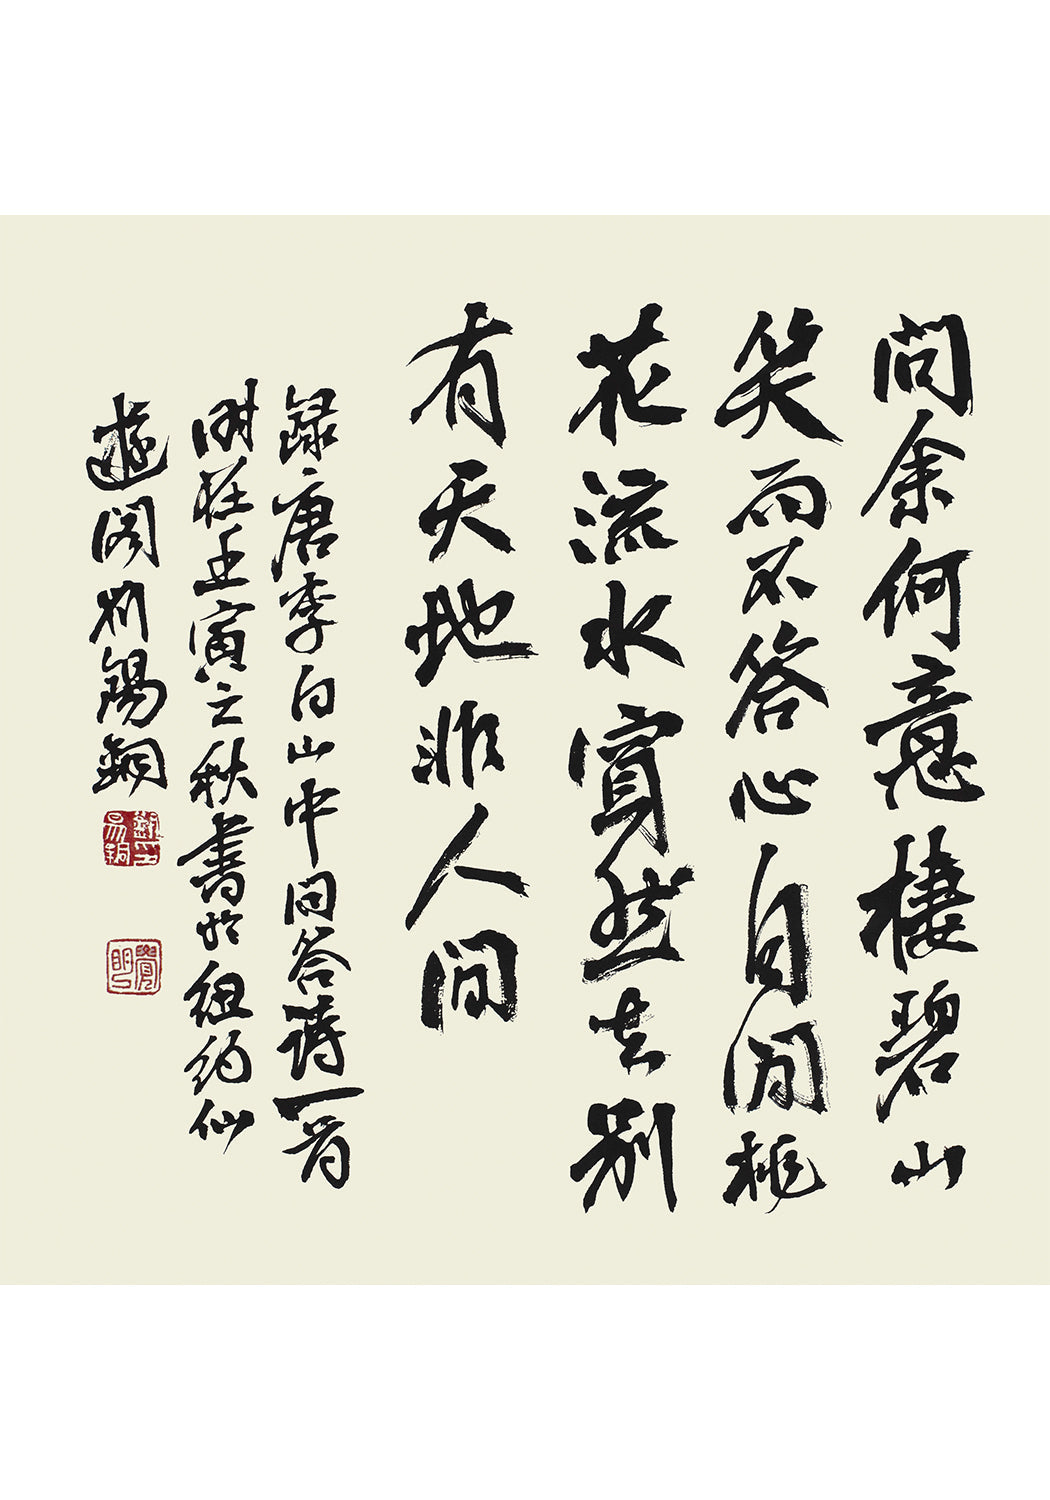 問余何意棲碧山
笑而不答心自閒桃
花流水窅然去別
有天地非人間
錄唐李白山中问答詩一首
時在壬寅之秋書於紐約仙
遊阁 錫銅